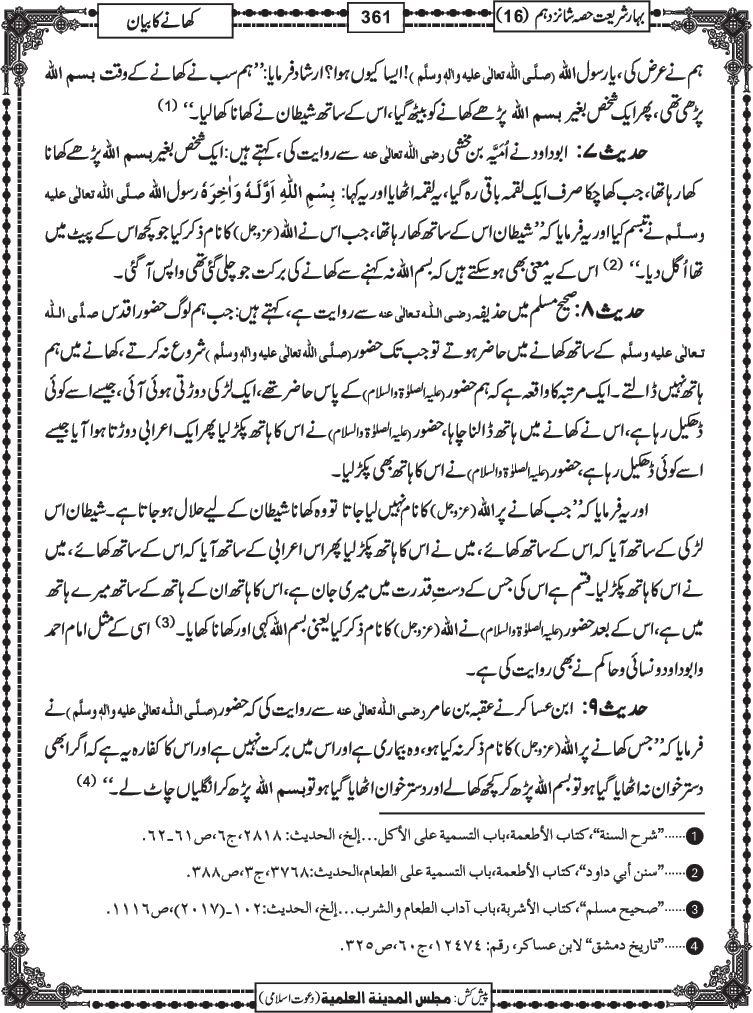 بہارِ شریعت حصہ شانزدہم (16)
361
کھانے کا بیان
ہم نے عرض کی، یارسول اللہ (صلَّی اللہ تعالٰی علیہ واٰلہٖ وسلَّم)! ایسا کیوں ہوا؟ ارشاد فرمایا: ’’ہم سب نے کھانے کے وقت بسم اللہ
پڑھی تھی، پھر ایک شخص بغیر بسم اللہ پڑھے کھانے کو بیٹھ گیا، اس کے ساتھ شیطان نے کھانا کھالیا۔‘‘ (1)
حدیث ۷: ابو داود نے اُمَیَّہ بن مخشی رضی اللہ تعالٰی عنہ سے روایت کی، کہتے ہیں: ایک شخص بغیر بسم اللہ پڑھے کھانا
کھا رہا تھا، جب کھا چکا صرف ایک لقمہ باقی رہ گیا، یہ لقمہ اٹھایا اور یہ کہا: بِسْمِ اللّٰهِ اَوَّلَهٗ وَاٰخِرَهٗ رسول اللہ صلَّی اللہ تعالٰی علیہ
وسلَّم نے تبسم کیا اور یہ فرمایا کہ ’’شیطان اس کے ساتھ کھا رہا تھا، جب اس نے اللہ (عزوجل) کا نام ذکر کیا جو کچھ اس کے پیٹ میں
تھا اُگل دیا۔‘‘ (2) اس کے یہ معنی بھی ہوسکتے ہیں کہ بسم اللہ نہ کہنے سے کھانے کی برکت جو چلی گئی تھی واپس آگئی۔
حدیث ۸: صحیح مسلم میں حذیفہ رضی اللہ تعالٰی عنہ سے روایت ہے، کہتے ہیں: جب ہم لوگ حضور اقدس صلَّی اللہ
تعالٰی علیہ وسلَّم کے ساتھ کھانے میں حاضر ہوتے تو جب تک حضور (صلَّی اللہ تعالٰی علیہ واٰلہٖ وسلَّم) شروع نہ کرتے، کھانے میں ہم
ہاتھ نہیں ڈالتے۔ ایک مرتبہ کا واقعہ ہے کہ ہم حضور (علیہ الصلوٰۃ والسلام) کے پاس حاضر تھے، ایک لڑکی دوڑتی ہوئی آئی، جیسے اسے کوئی
ڈھکیل رہا ہے، اس نے کھانے میں ہاتھ ڈالنا چاہا، حضور (علیہ الصلوٰۃ والسلام) نے اس کا ہاتھ پکڑ لیا پھر ایک اعرابی دوڑتا ہوا آیا جیسے
اسے کوئی ڈھکیل رہا ہے، حضور (علیہ الصلوٰۃ والسلام) نے اس کا ہاتھ بھی پکڑ لیا۔
اور یہ فرمایا کہ ’’جب کھانے پر اللہ (عزوجل) کا نام نہیں لیا جاتا تو وہ کھانا شیطان کے لیے حلال ہوجاتا ہے۔ شیطان اس
لڑکی کے ساتھ آیا کہ اس کے ساتھ کھائے، میں نے اس کا ہاتھ پکڑ لیا پھر اس اعرابی کے ساتھ آیا کہ اس کے ساتھ کھائے، میں
نے اس کا ہاتھ پکڑ لیا۔ قسم ہے اس کی جس کے دستِ قدرت میں میری جان ہے، اس کا ہاتھ ان کے ہاتھ کے ساتھ میرے ہاتھ
میں ہے، اس کے بعد حضور (علیہ الصلوٰۃ والسلام) نے اللہ (عزوجل) کا نام ذکر کیا یعنی بسم اللہ کہی اور کھانا کھایا۔ (3) اسی کے مثل امام احمد
و ابو داود و نسائی و حاکم نے بھی روایت کی ہے۔
حدیث ۹: ابن عساکر نے عقبہ بن عامر رضی اللہ تعالٰی عنہ سے روایت کی کہ حضور (صلَّی اللہ تعالٰی علیہ واٰلہٖ وسلَّم) نے
فرمایا کہ ’’جس کھانے پر اللہ (عزوجل) کا نام ذکر نہ کیا ہو، وہ بیماری ہے اور اس میں برکت نہیں ہے اور اس کا کفارہ یہ ہے کہ اگر ابھی
دسترخوان نہ اٹھایا گیا ہو تو بسم اللہ پڑھ کر کچھ کھالے اور دسترخوان اٹھایا گیا ہو تو بسم اللہ پڑھ کر انگلیاں چاٹ لے۔‘‘ (4)
1 ......”شرح السنة“، کتاب الأطعمة، باب التسمية على الأكل...إلخ، الحديث: ۲۸۱۸، ج۶، ص۶۱۔۶۲.
2 ......”سنن أبي داود“، کتاب الأطعمة، باب التسمية على الطعام، الحديث: ۳۷۶۸، ج۳، ص۳۸۸.
3 ......”صحيح مسلم“، کتاب الأشربة، باب آداب الطعام والشرب...إلخ، الحديث: ۱۰۲۔(۲۰۱۷)، ص۱۱۱۶.
4 ......”تاريخ دمشق“ لابن عساكر، رقم: ۱۲۴۷۴، ج۶۰، ص۳۲۵.
پیش کش: مجلس المدینۃ العلمیۃ (دعوت اسلامی)